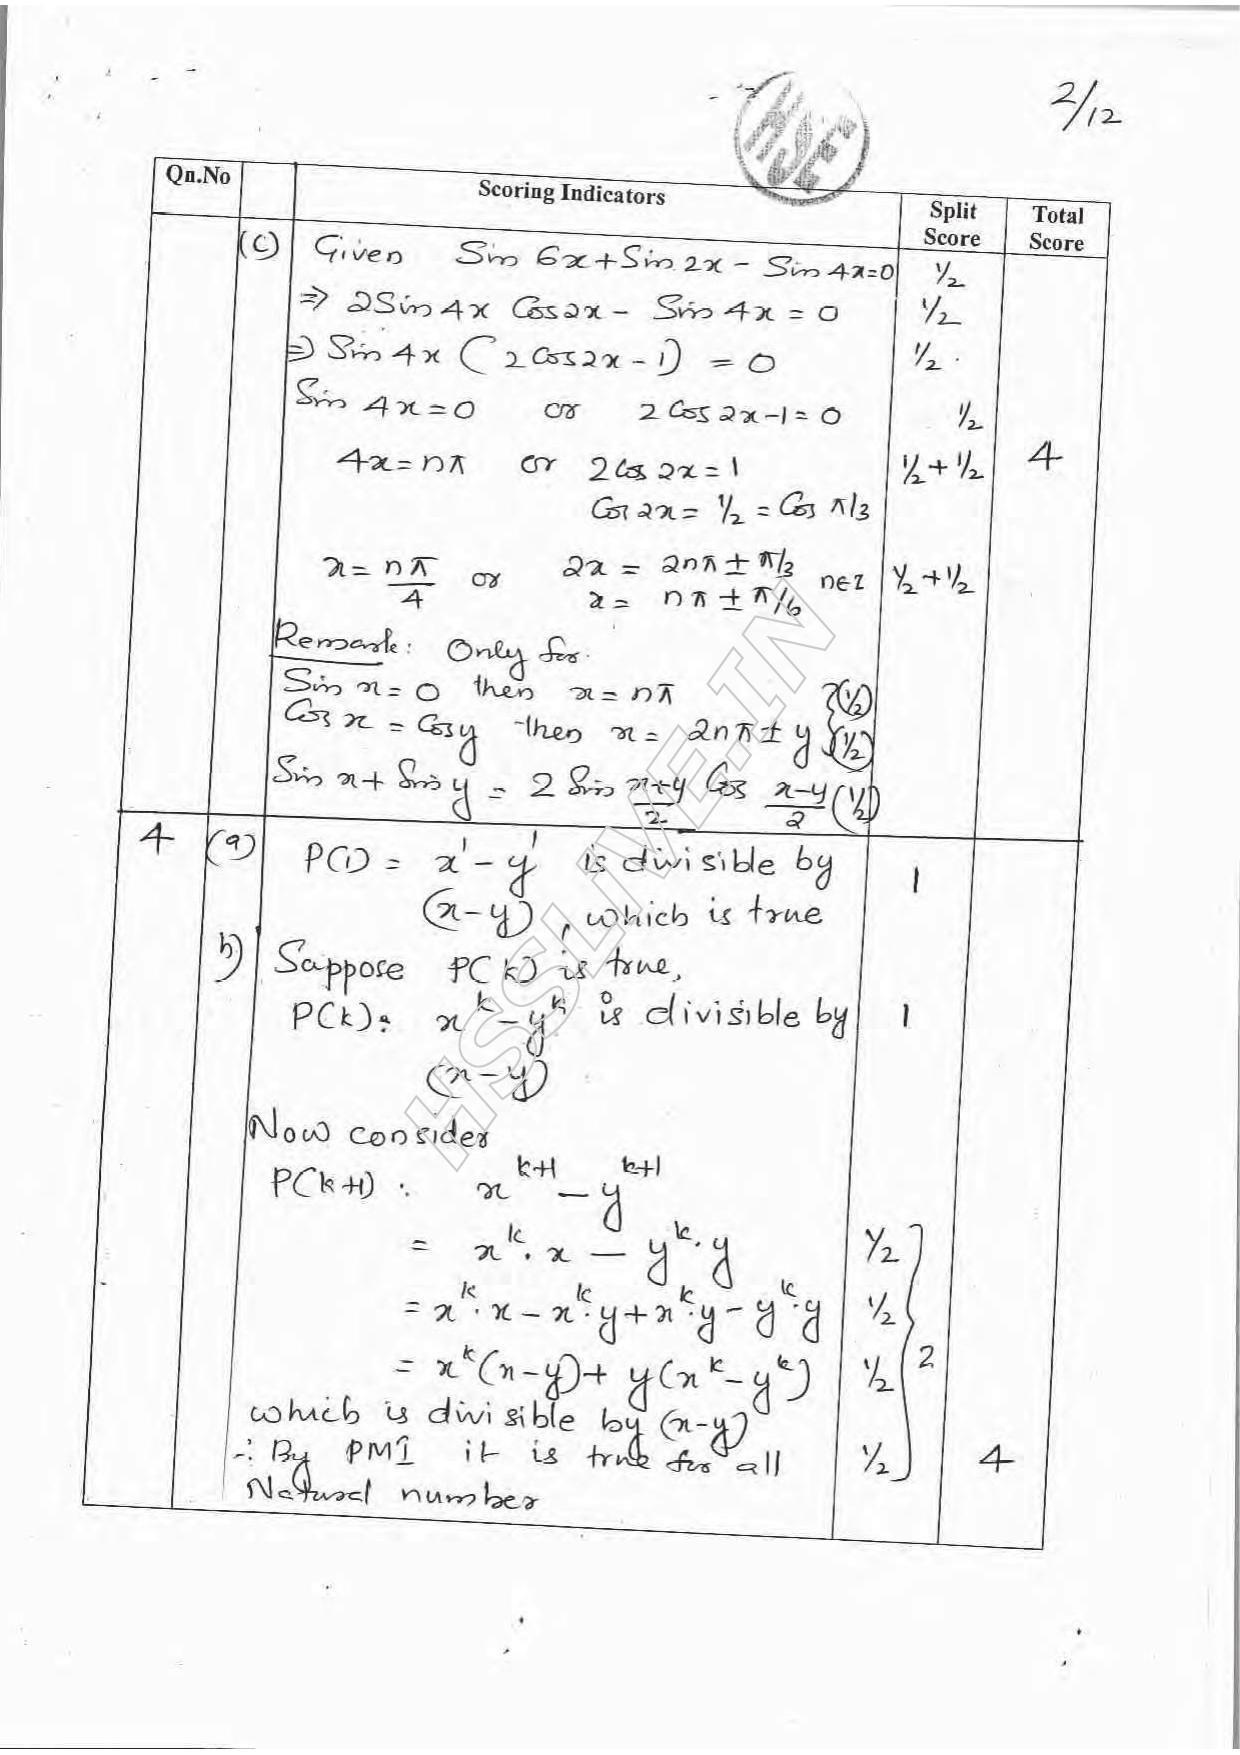 2/12
HSE
Qn.No Scoring Indicators Split Score Total Score
(c) Given Sin 6x + Sin 2x - Sin 4x = 0 1/2
=> 2 Sin 4x Cos 2x - Sin 4x = 0 1/2
=> Sin 4x (2 Cos 2x - 1) = 0 1/2
Sin 4x = 0 or 2 Cos 2x - 1 = 0 1/2
4x = nπ or 2 Cos 2x = 1 1/2 + 1/2 4
Cos 2x = 1/2 = Cos π/3
x = nπ/4 or 2x = 2nπ ± π/3 n∈Z 1/2 + 1/2
x = nπ ± π/6
Remark: Only for
Sin x = 0 then x = nπ (1/2)
Cos x = Cos y then x = 2nπ ± y (1/2)
Sin x + Sin y = 2 Sin x+y/2 Cos x-y/2 (1/2)
4 (a) P(1) = x¹ - y¹ is divisible by 1
(x-y), which is true
b) Sappose P(k) is true,
P(k): x^k - y^k is divisible by 1
(x-y)
Now consider
P(k+1): x^k+1 - y^k+1
= x^k. x - y^k. y 1/2
= x^k. x - x^k. y + x^k. y - y^k. y 1/2
= x^k (x-y) + y(x^k - y^k) 1/2 2
which is divisible by (x-y)
∴ By PMI it is true for all 1/2 4
Natural number
HSSLIVE.IN